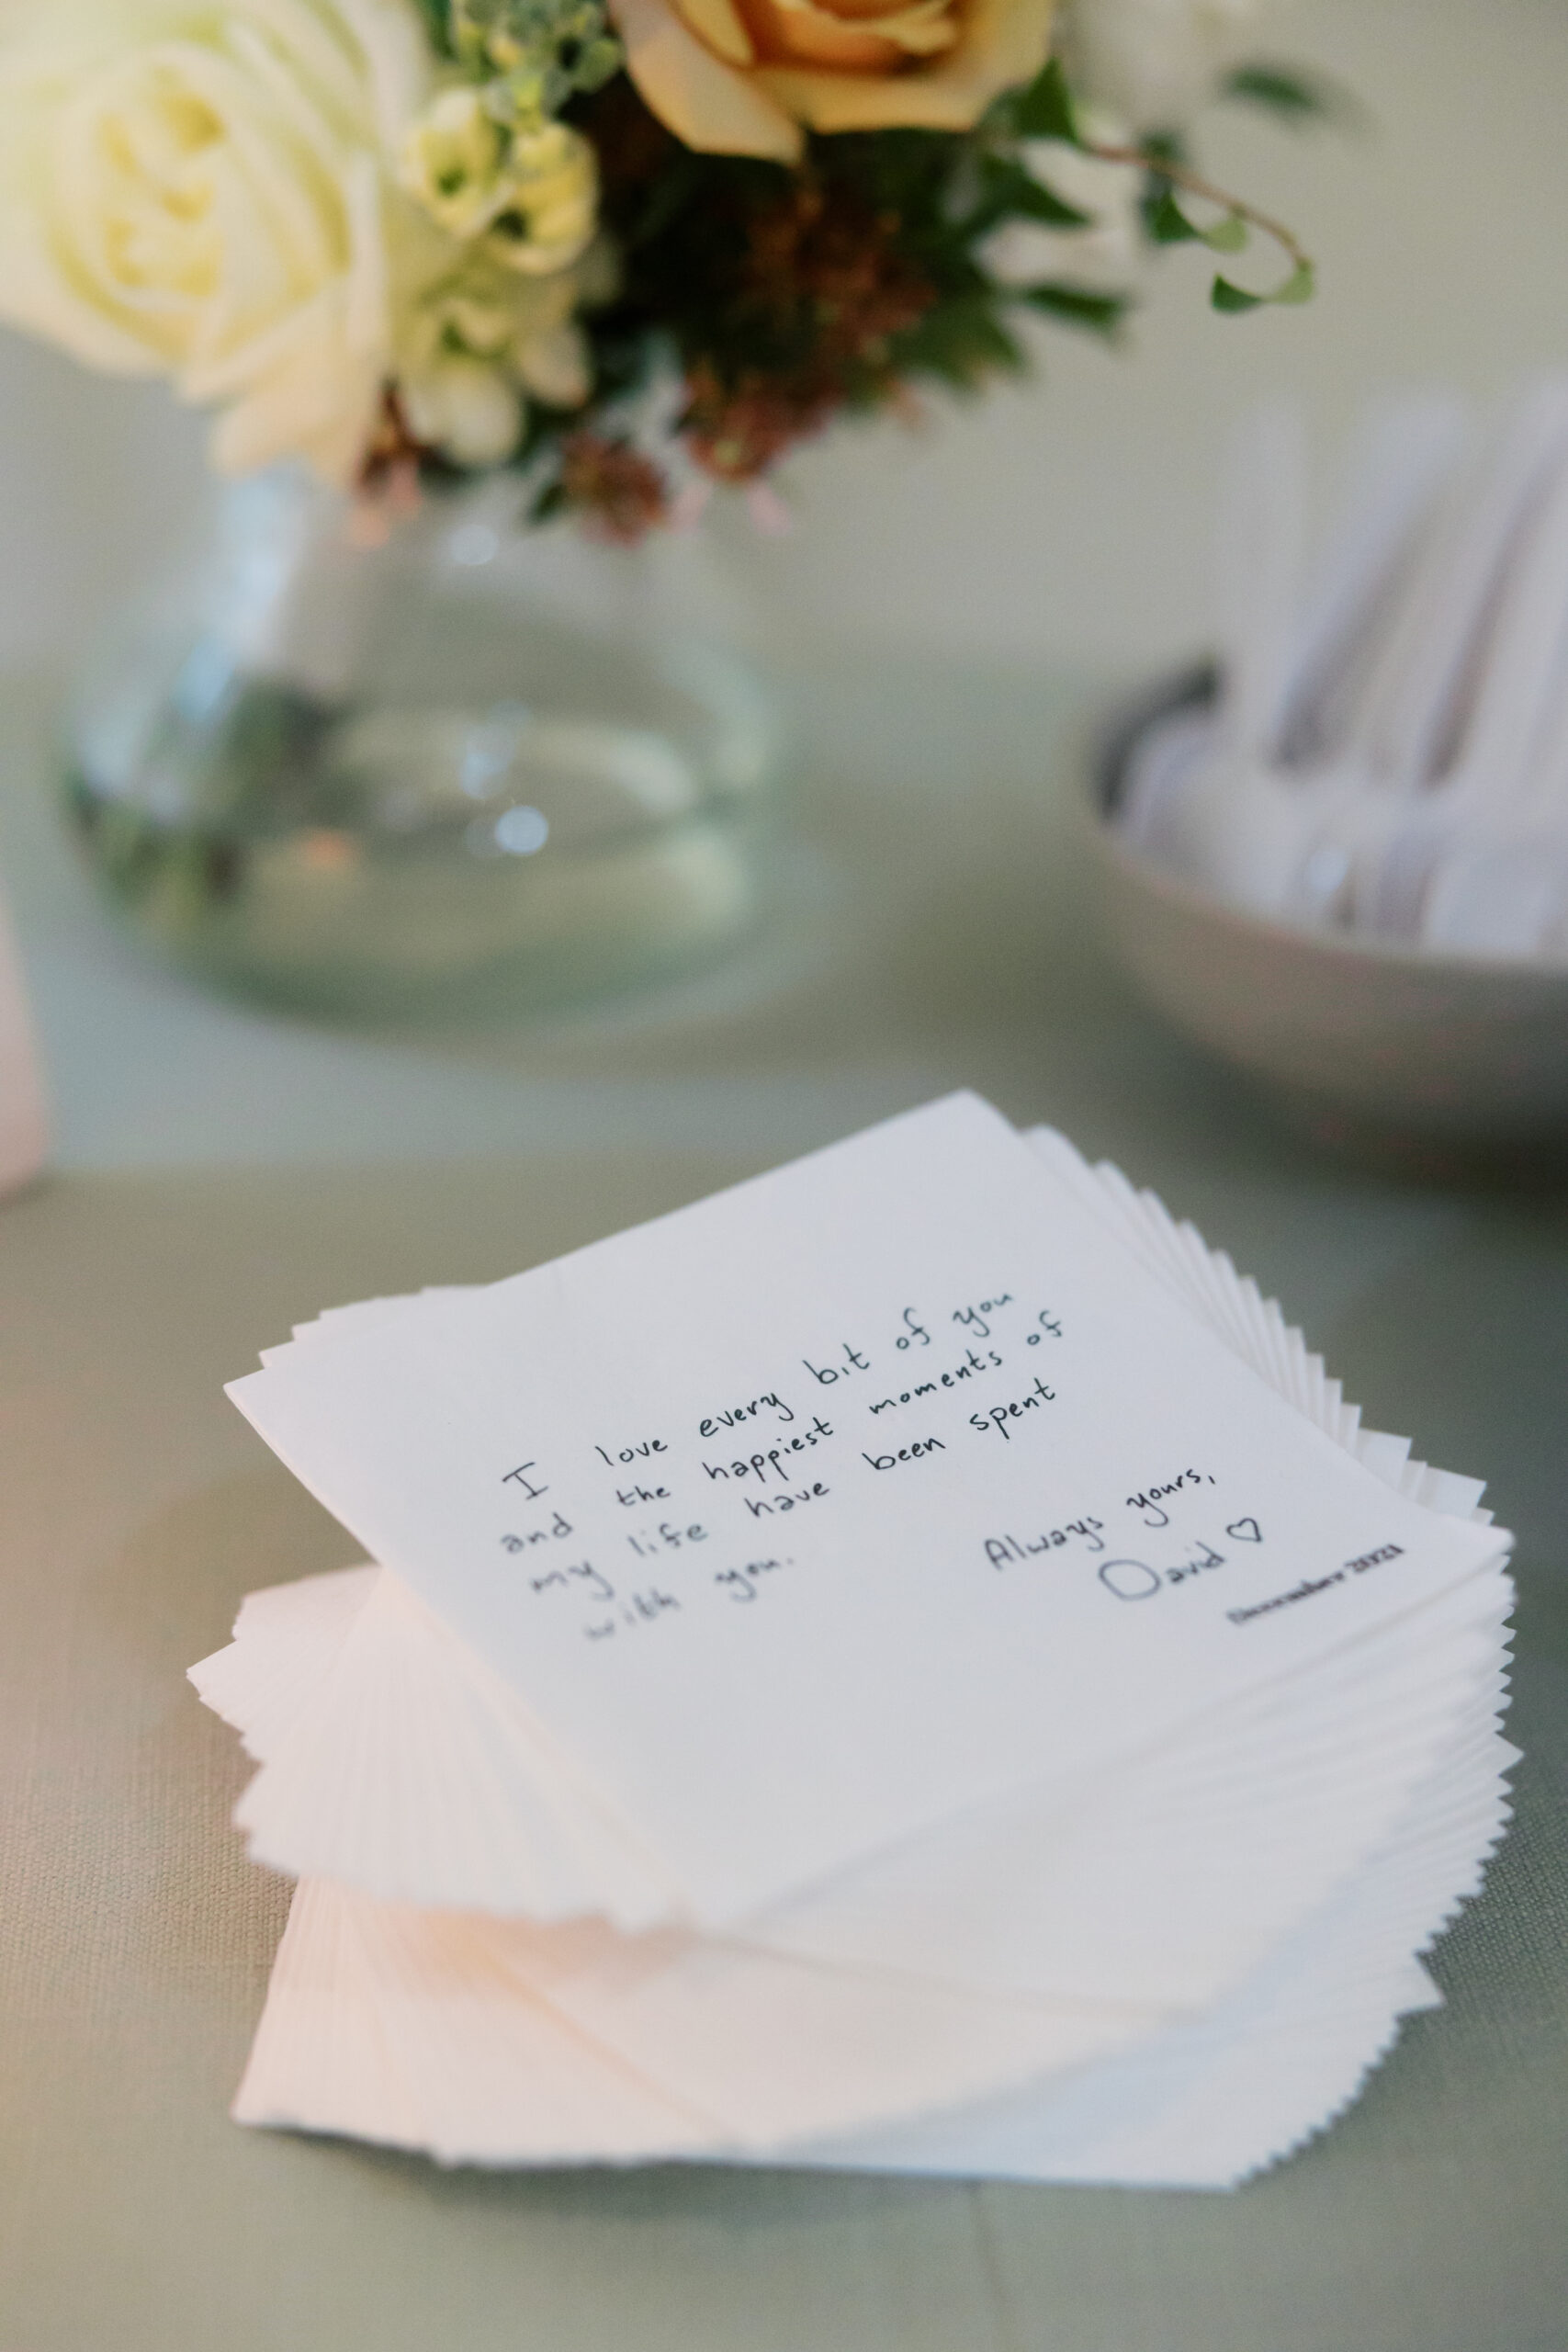 I love every bit of you
and the happiest moments of
my life have been spent
with you.
Always yours,
David ♡
2021